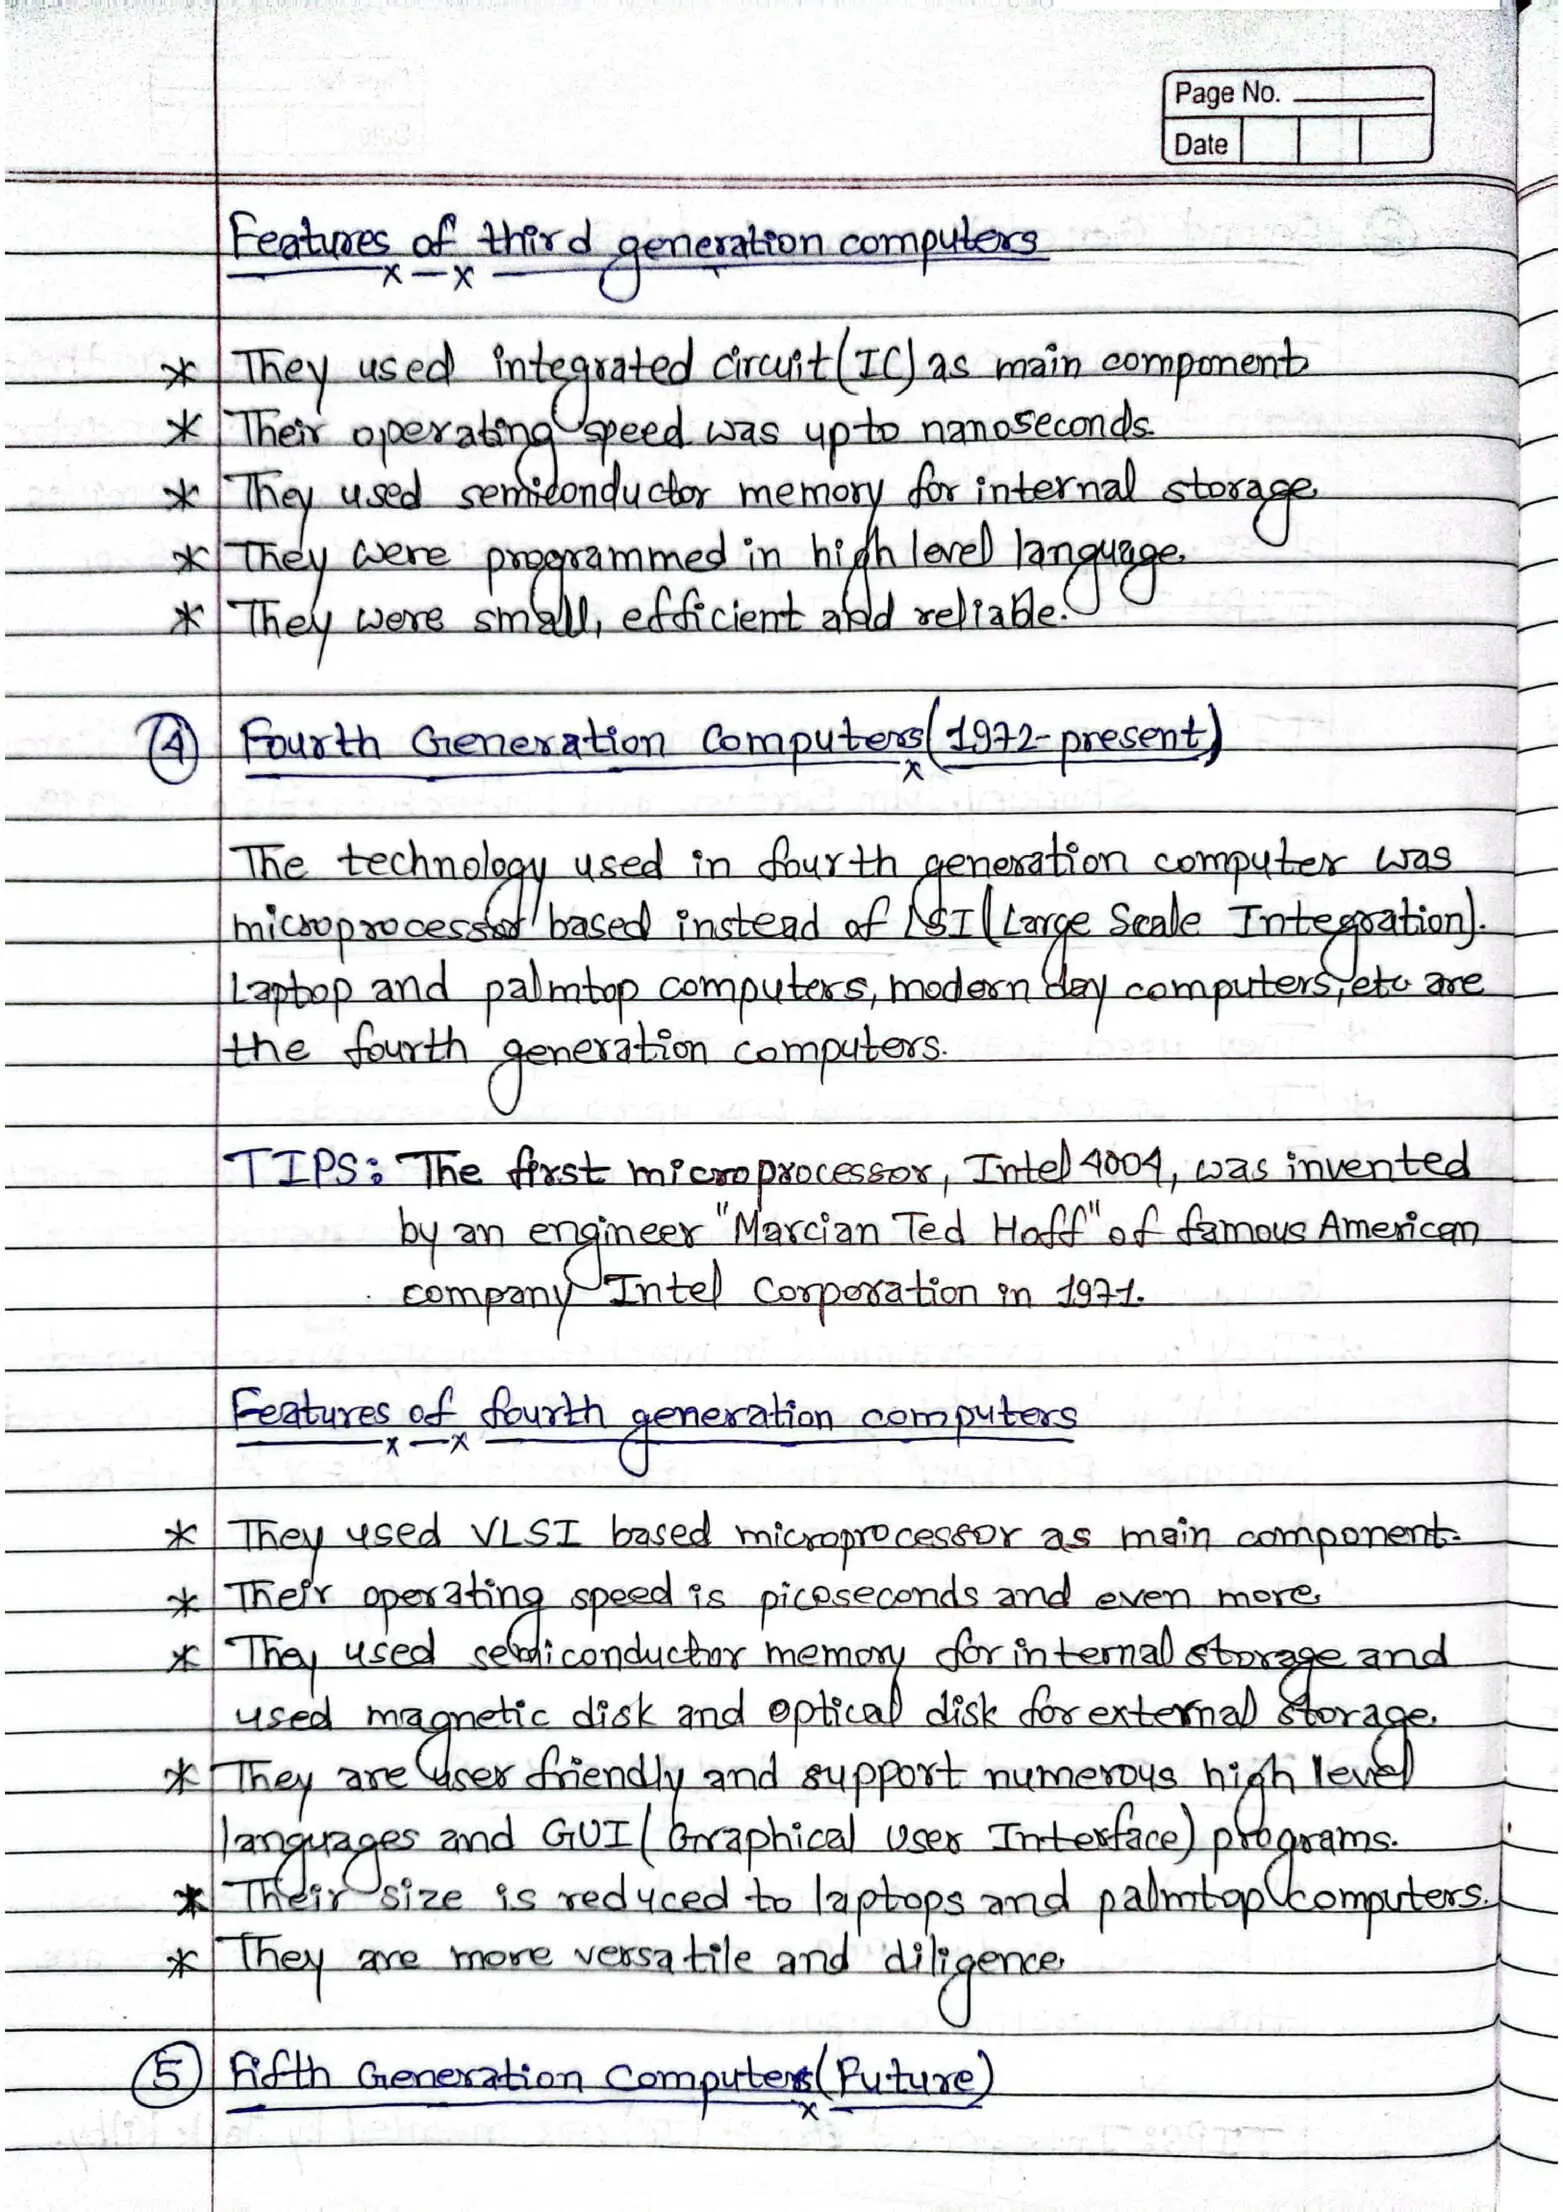 Page No.
Date
Features of third generation computers
* They used integrated circuit (IC) as main component
* Their operating speed was upto nanoseconds.
* They used semiconductor memory for internal storage.
* They were programmed in high level language.
* They were small, efficient and reliable.
4 Fourth Generation Computers (1972-present)
The technology used in fourth generation computer was
microprocessor based instead of LSI (Large Scale Integration).
Laptop and palmtop computers, modern day computers, etc are
the fourth generation computers.
TIPS: The first microprocessor, Intel 4004, was invented
by an engineer "Marcian Ted Hoff" of famous American
company Intel Corporation in 1971.
Features of fourth generation computers
* They used VLSI based microprocessor as main component.
* Their operating speed is picoseconds and even more.
* They used semiconductor memory for internal storage and
used magnetic disk and optical disk for external storage.
* They are user friendly and support numerous high level
languages and GUI (Graphical User Interface) programs.
* Their size is reduced to laptops and palmtop computers.
* They are more versatile and diligence.
5 Fifth Generation Computers (Future)